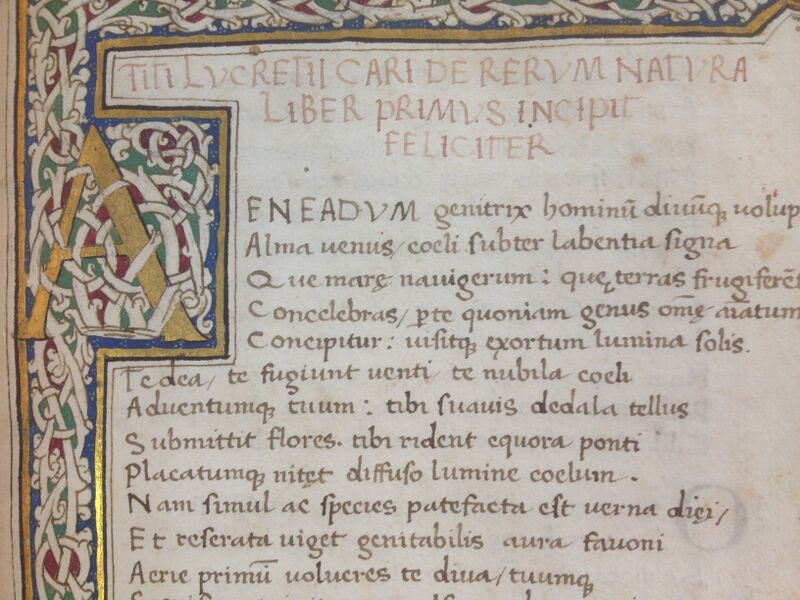 TITI LVCRETII CARI DE RERVM NATVRA
LIBER PRIMVS INCIPIT
FELICITER
AENEADVM genitrix hominū diuūq; volup
Alma venus/ coeli subter labentia signa
Que marę nauigerum: quę terras frugiferēt
Concelebras/ p̱te quoniam genus om̄ę aīatum
Concipitur: uisitq; exortum lumina solis.
Te dea/ te fugiunt venti/ te nubila coeli
Aduentumq; tuum: tibi suauis dedala tellus
Submittit flores. tibi rident equora ponti
Placatumq; nitęt diffuso lumine coelum.
Nam simul ac species patefacta est verna dięi/
Et reserata uiget genitabilis aura fauoni
Aerie primū uolucres te diua/ tuumq;